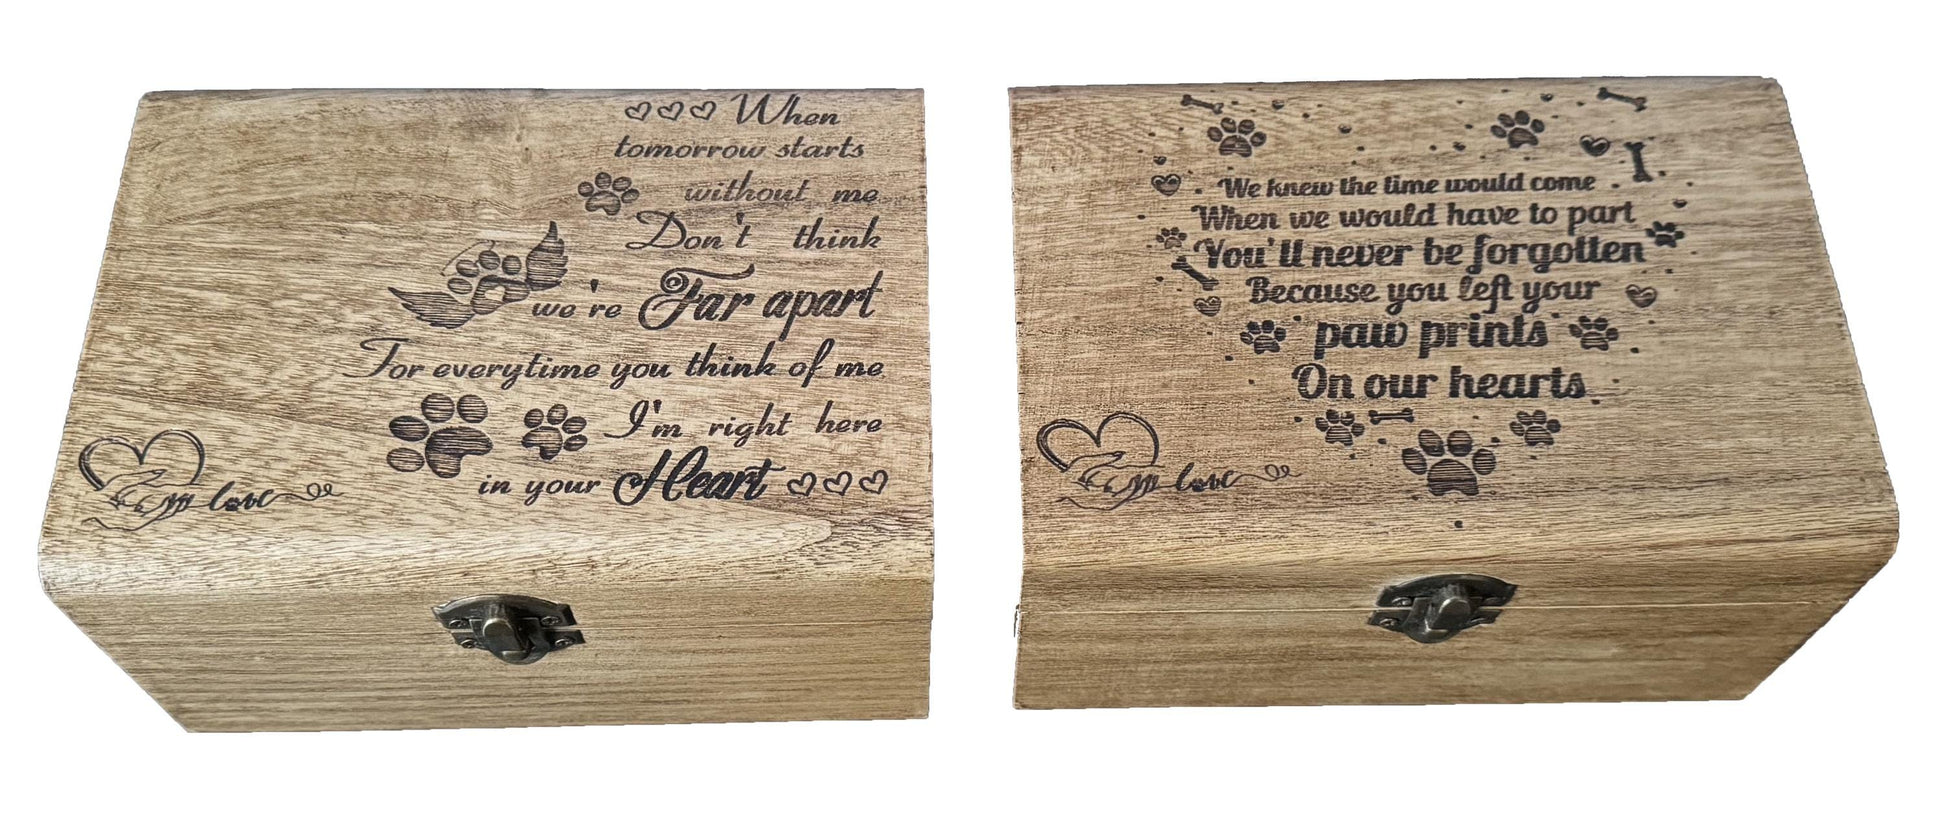 When
tomorrow starts
without me
Don't think
we're Far apart
For everytime you think of me
I'm right here
in your Heart
love
We knew the time would come
When we would have to part
You'll never be forgotten
Because you left your
paw prints
On our hearts
love